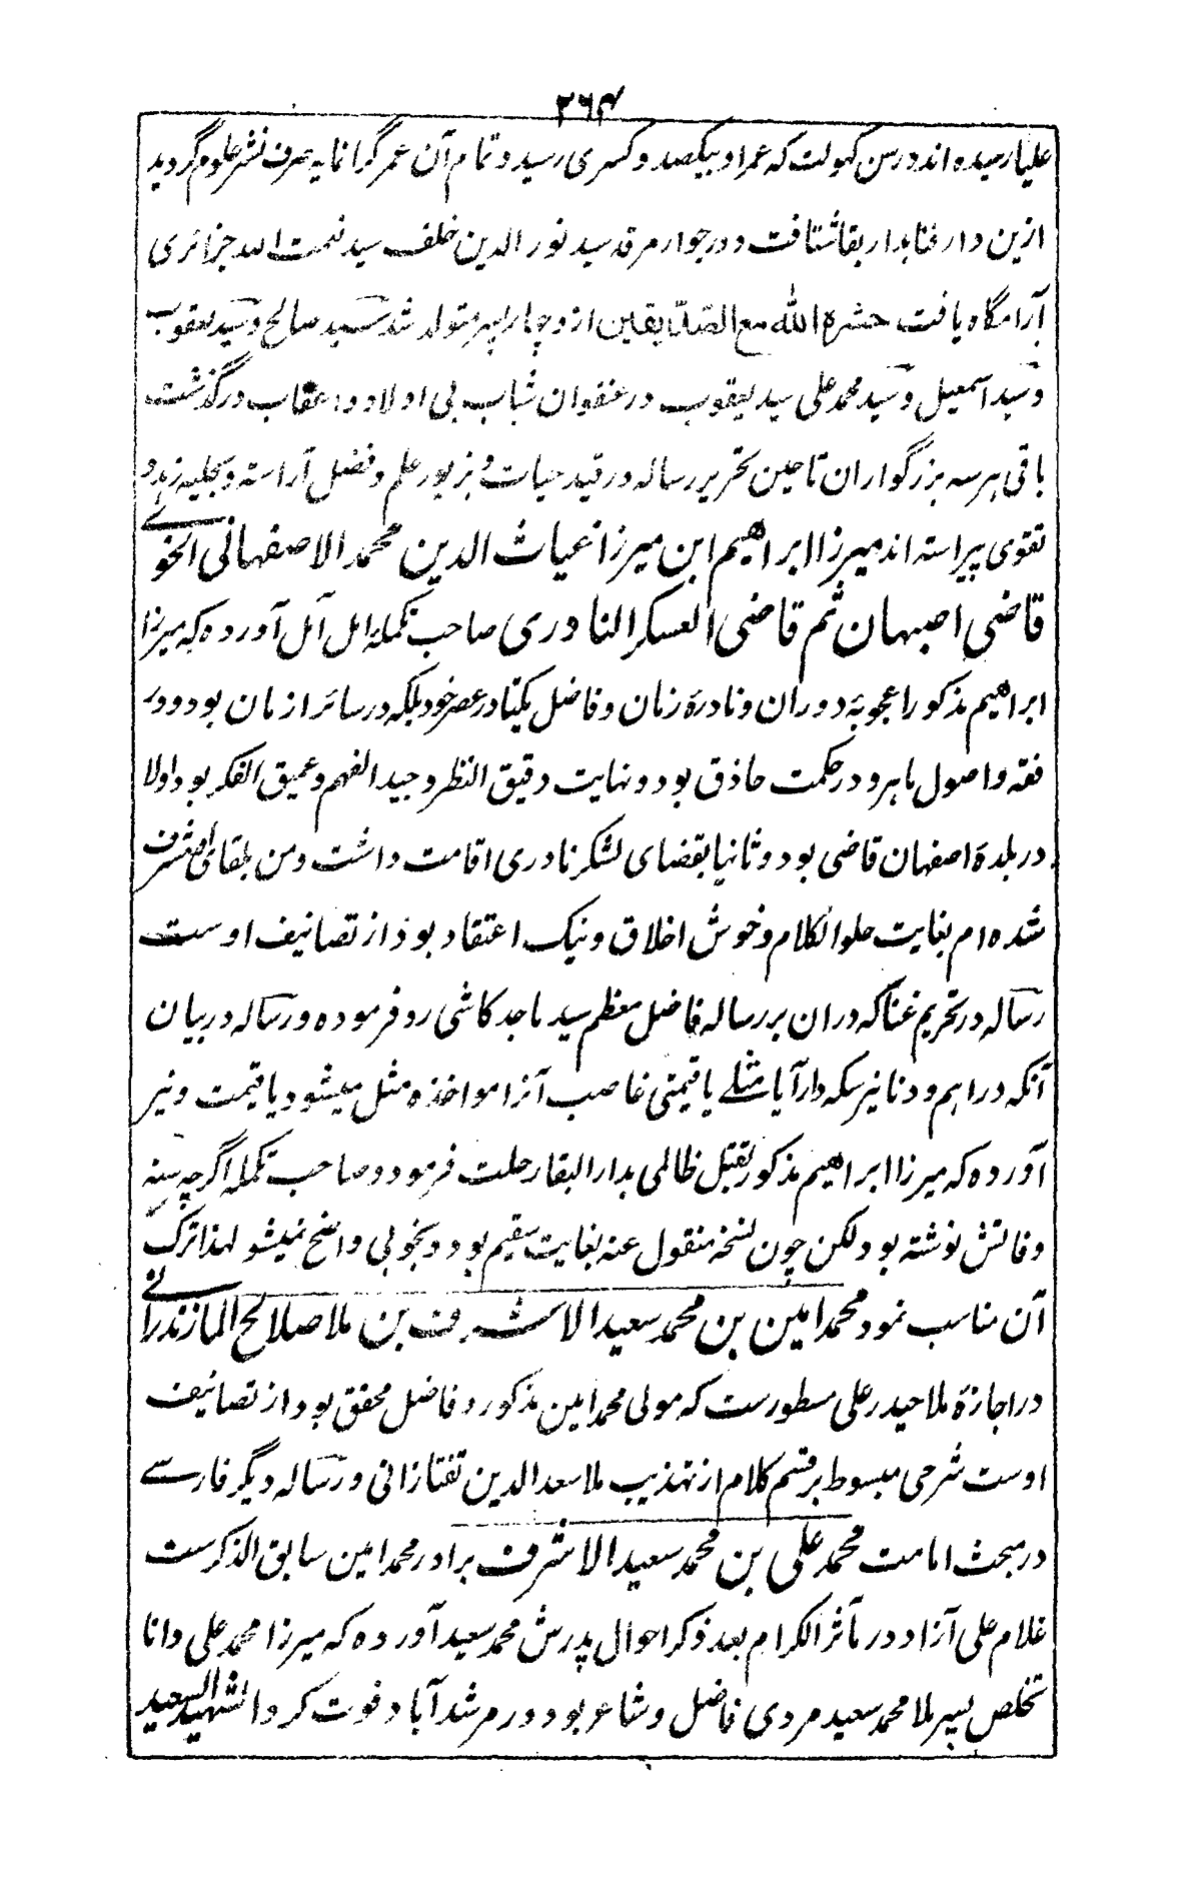 ۳۶۴
علیا رسیده اند در سن کهولت که عمر او بیکصد و کسری رسید و تمام آن عمر گرانمایه صرف نشر علوم گردید
ازین دار فنا بدار بقا شتافت و در جوار مرقد سید نور الدین خلف سید نعمت الله جزائری
آرامگاه یافت حشره الله مع الصدّیقین ازو چار پسر متولد شد سید صالح و سید یعقوب
و سید اسمعیل و سید محمد علی سید یعقوب در عنفوان شباب بی اولاد و اعقاب درگذشت
باقی هر سه بزرگواران تا حین تحریر رساله در قید حیات و بزیور علم و فضل آراسته و بحلیه زهد و
تقوی پیراسته اند میرزا ابراهیم ابن میرزا غیاث الدین محمد الاصفهانی الخوئے
قاضی اصبهان ثم قاضی العسکر النادری صاحب تکملة امل آمل آورده که میرزا
ابراهیم مذکور اعجوبۀ دوران و نادرۀ زمان و فاضل یکتا در عصر خود بلکه در سائر ازمان بود و در
فقه و اصول ماهر و در حکمت حاذق بود و نهایت دقیق النظر و جید الفهم و عمیق الفکر بود اولا
در بلدۀ اصفهان قاضی بود و ثانیا بقضای لشکر نادری اقامت داشت و من بلقای او مشرف
شده ام بغایت حلو الکلام و خوش اخلاق و نیک اعتقاد بود از تصانیف اوست
رساله در تحریم غنا که دران بر رساله فاضل معظم سید ماجد کاشی رد فرموده و رساله در بیان
آنکه دراهم و دنانیر سکه دار آیا مثلے یا قیمتی غاصب آنرا مواخذه مثل میشود یا قیمت و نیز
آورده که میرزا ابراهیم مذکور بقتل ظالمی بدار البقا رحلت فرمود و صاحب تکمله اگرچه سنه
وفاتش نوشته بود لکن چون نسخه منقول عنه بغایت سقیم بود و بخوبی واضح نمیشو لهذا ترک
آن مناسب نمود محمد امین بن محمد سعید الاشرف بن ملا صلالح المازندرانے
در اجازۀ ملا حیدر علی مسطورست که مولی محمد امین مذکور و فاضل محقق بود از تصانیف
اوست شرحی مبسوط بر قسم کلام از تهذیب ملا سعد الدین تفتازانی و رساله دیگر فارسے
در مبحث امامت محمد علی بن محمد سعید الاشرف برادر محمد امین سابق الذکرست
غلام علی آزاد در مآثر الکرام بعد ذکر احوال پدرش محمد سعید آورده که میرزا محمد علی دانا
تخلص پسر ملا محمد سعید مردی فاضل و شاعر بود و در مرشد آباد فوت کرد الشهید السعید